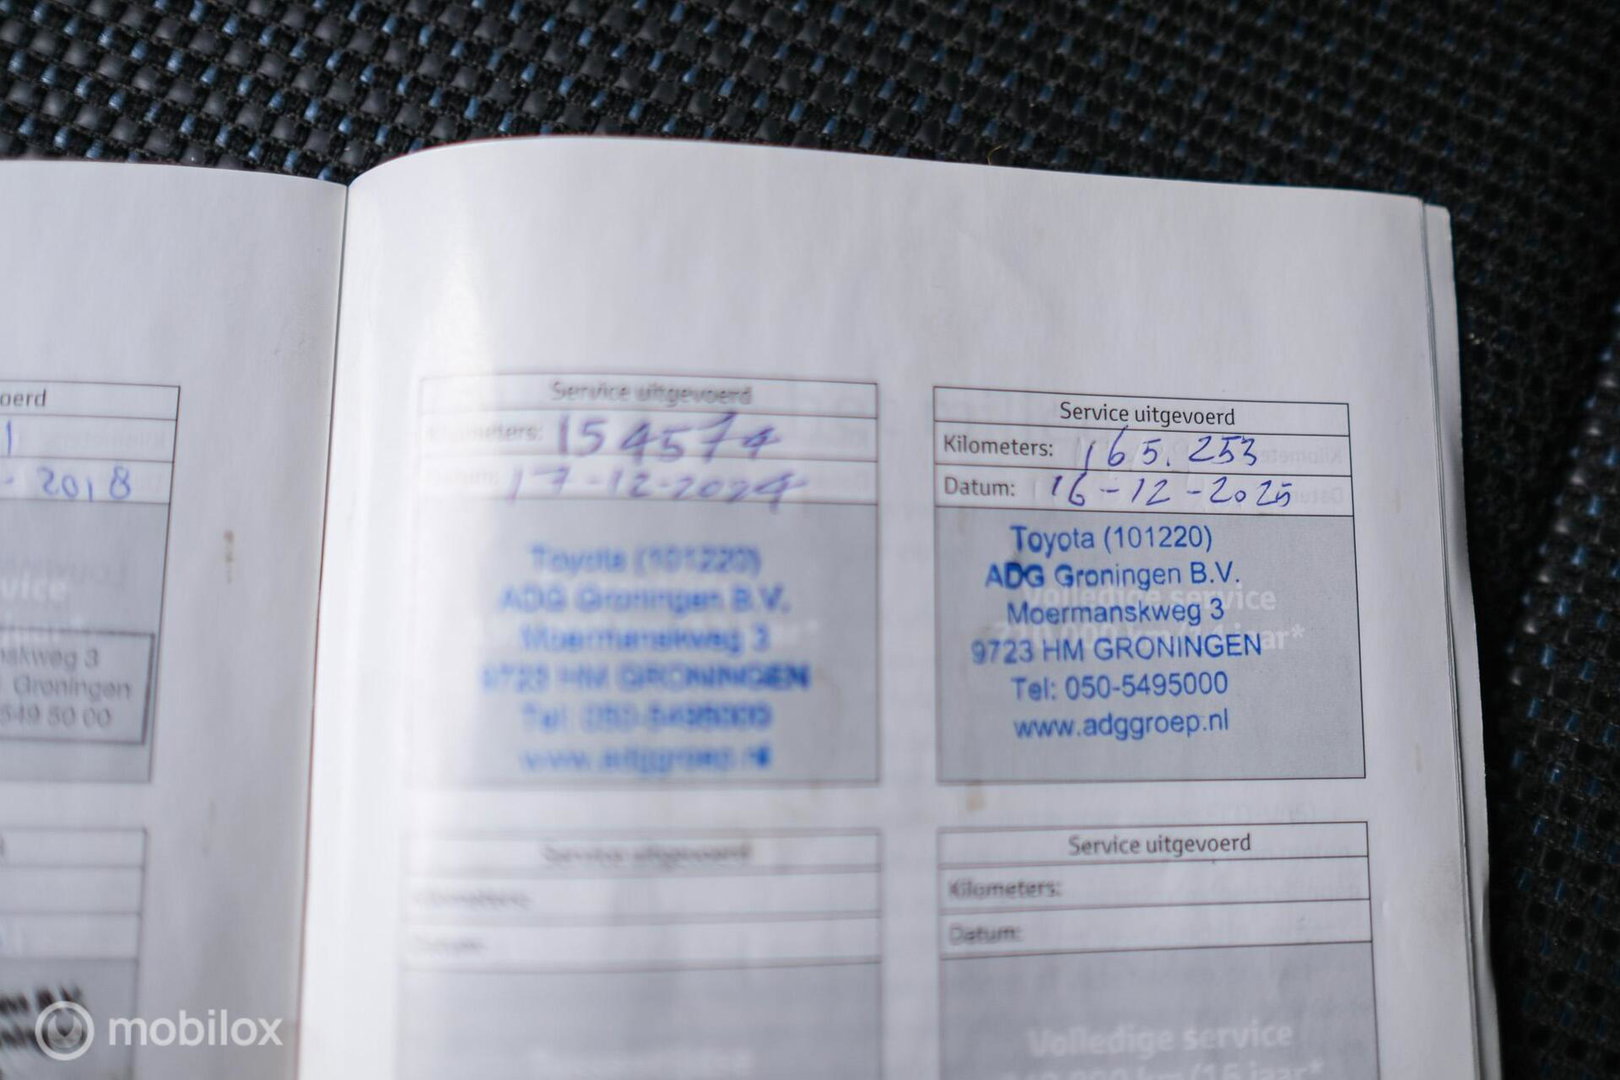 oerd
- 2018
vice
skweg 3
Groningen
549 50 00
Service uitgevoerd
Kilometers: 154574
Datum: 17-12-2024
Toyota (101220)
ADG Groningen B.V.
Moermanskweg 3
9723 HM GRONINGEN
Tel: 050-5495000
www.adggroep.nl
Service uitgevoerd
Kilometers: 165.253
Datum: 16-12-2025
Toyota (101220)
ADG Groningen B.V.
Volledige service
Moermanskweg 3
jaar*
9723 HM GRONINGEN
Tel: 050-5495000
www.adggroep.nl
Service uitgevoerd
Kilometers:
Datum:
Service uitgevoerd
Kilometers:
Datum:
Volledige service
mobilox